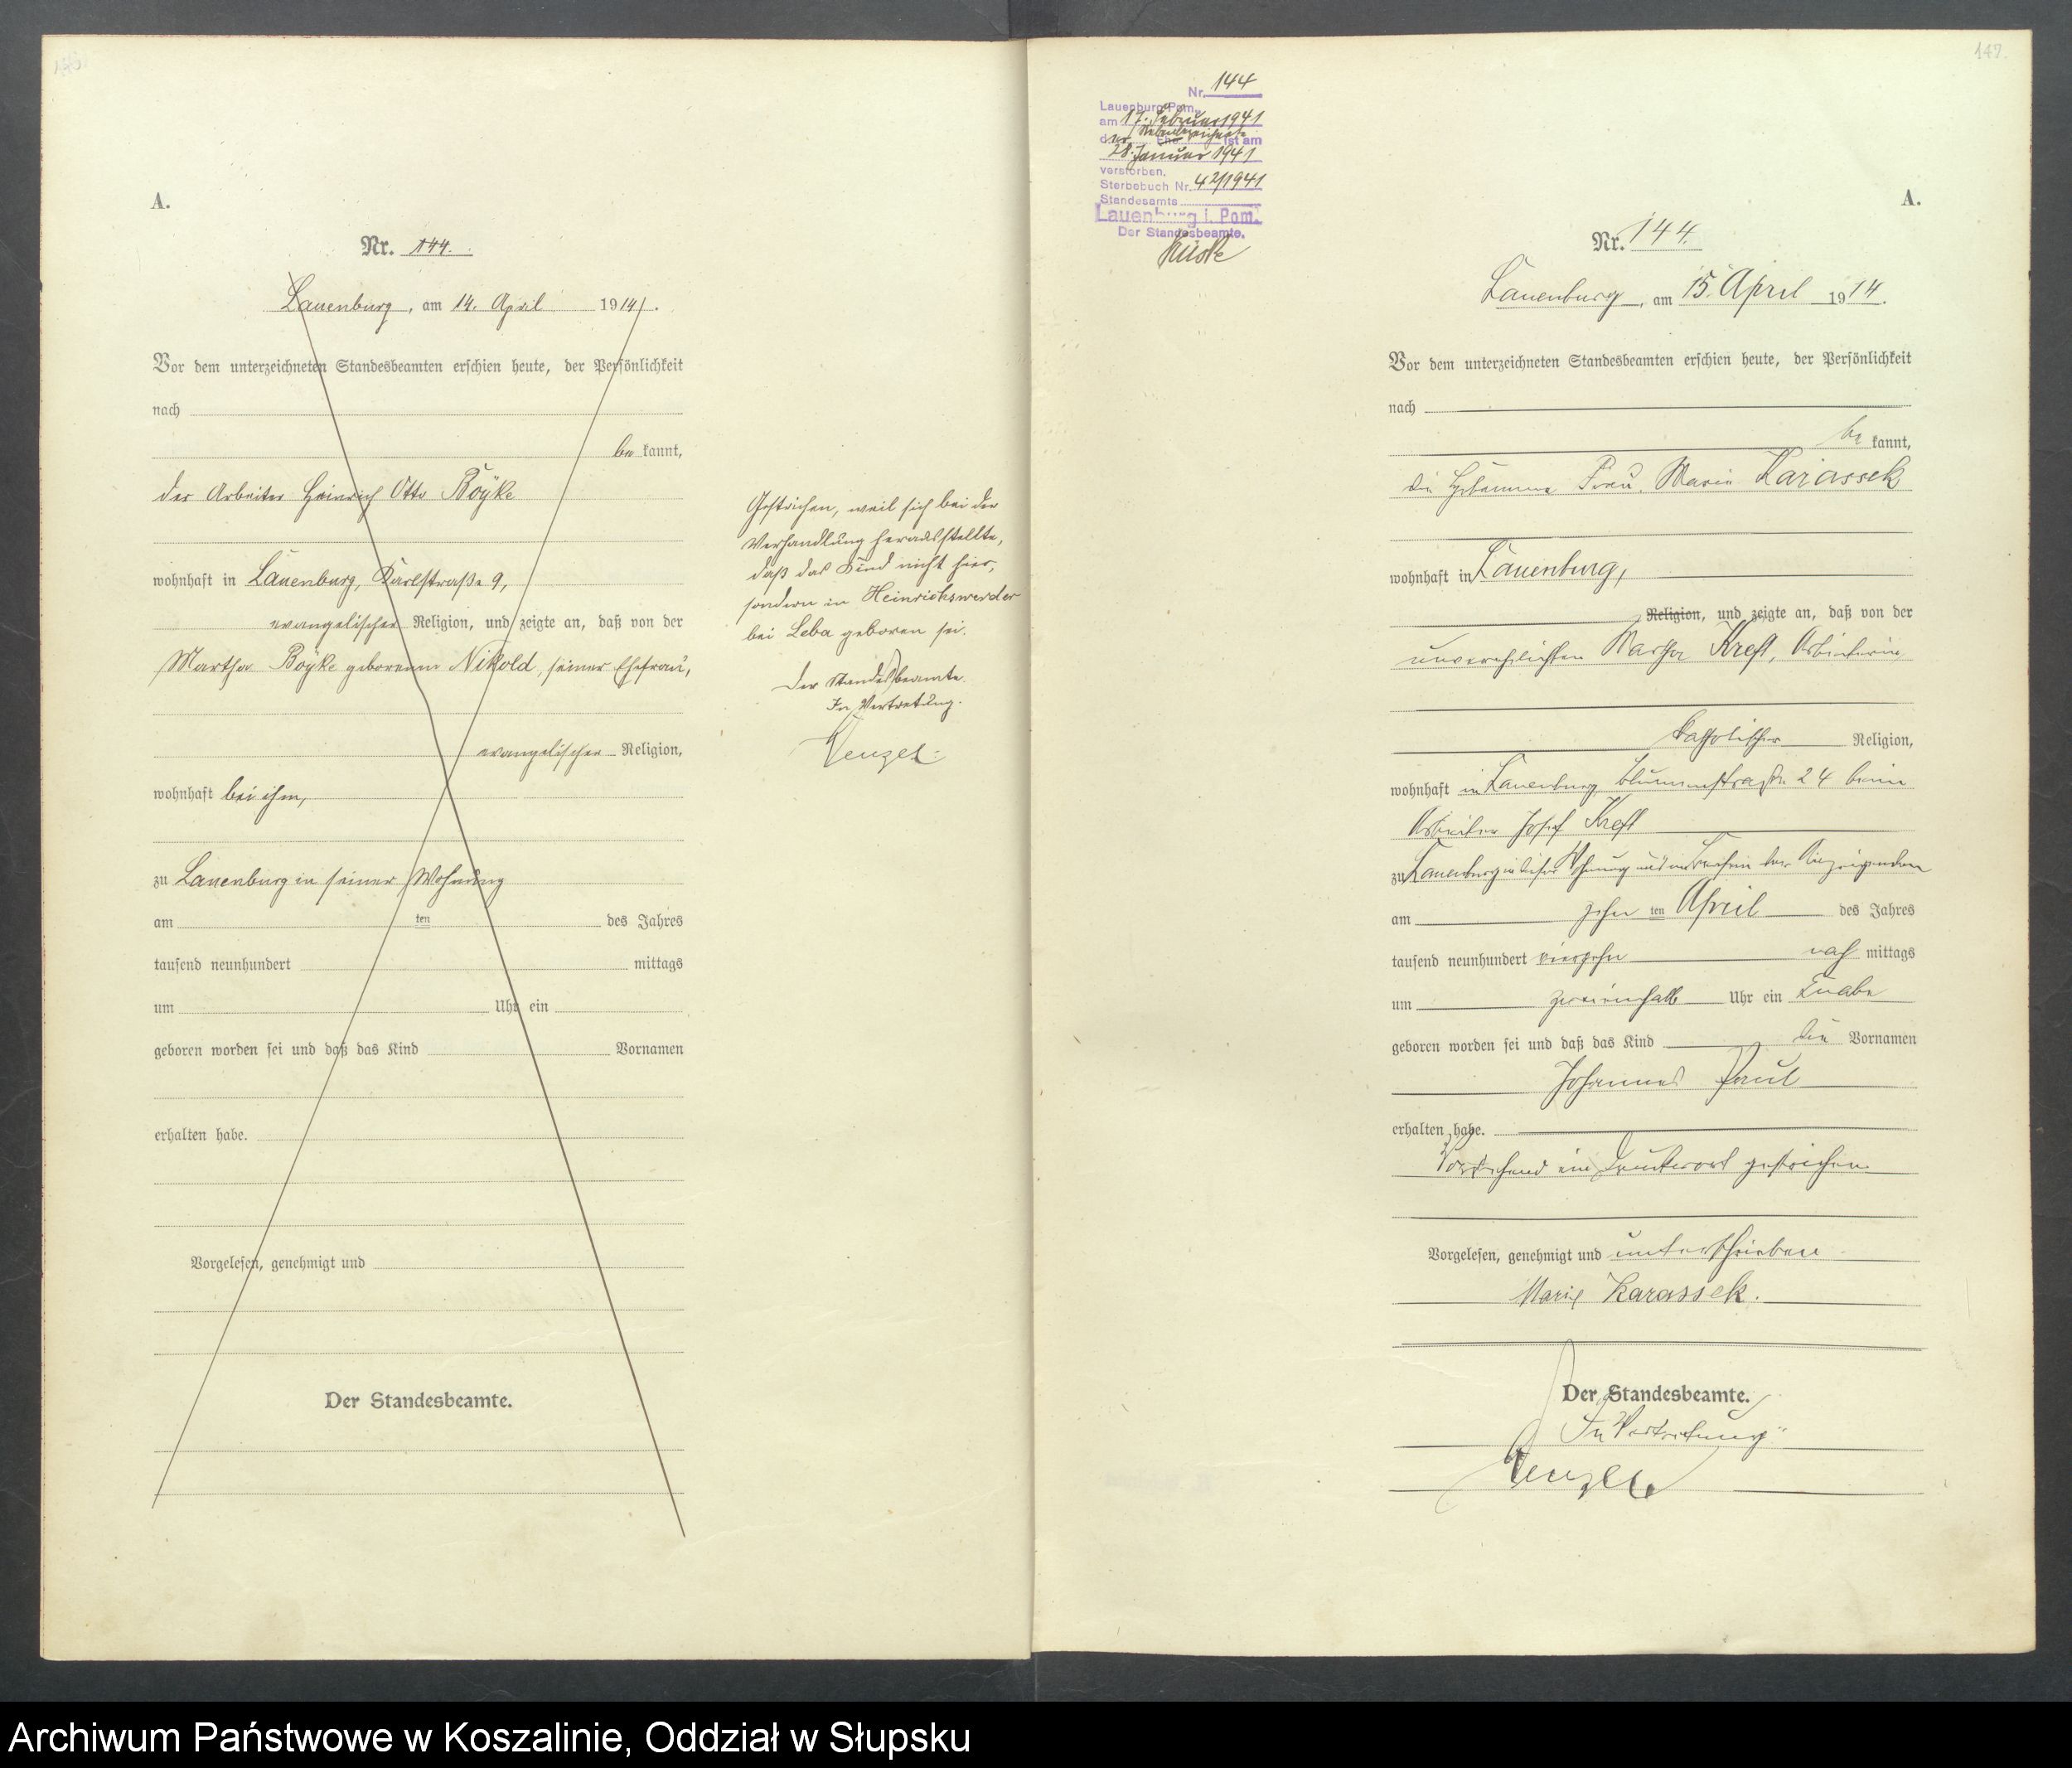 A.
Nr. 144.
Lauenburg, am 14. April 1914.
Vor dem unterzeichneten Standesbeamten erschien heute, der Persönlichkeit
nach
be kannt,
der Arbeiter Heinrich Otto Böÿke
wohnhaft in Lauenburg, Karlstraße 9,
evangelischer Religion, und zeigte an, daß von der
Martha Böÿke geborenen Nikold, seiner Ehefrau,
evangelischer Religion,
wohnhaft bei ihm,
zu Lauenburg in seiner Wohnung
am ten des Jahres
tausend neunhundert mittags
um Uhr ein
geboren worden sei und daß das Kind Vornamen
erhalten habe.
Vorgelesen, genehmigt und
Der Standesbeamte.
Gestrichen, weil sich bei der
Verhandlung herausstellte,
daß das Kind nicht hier,
sondern in Heinrichswerder
bei Leba geboren sei.
Der Standesbeamte.
In Vertretung.
Wenzel.
147.
Nr. 144
Lauenburg Pom.
am 17. Februar 1941
ist am
28. Januar 1941
verstorben.
Sterbebuch Nr. 42/1941
Standesamts
Lauenburg i. Pom.
Der Standesbeamte.
A.
Nr. 144.
Lauenburg, am 15. April 1914.
Vor dem unterzeichneten Standesbeamten erschien heute, der Persönlichkeit
nach
be kannt,
die Hebamme Frau Marie Karassek
wohnhaft in Lauenburg,
Religion, und zeigte an, daß von der
unverehelichten Martha Kreft, Arbeiterin,
katholischer Religion,
wohnhaft in Lauenburg Blumenstraße 24 beim
Arbeiter Josef Kreft
zu Lauenburg in dieser Wohnung und im Beisein der Anzeigenden
am zehn ten April des Jahres
tausend neunhundert vierzehn nach mittags
um zweieinhalb Uhr ein Knabe
geboren worden sei und daß das Kind die Vornamen
Johannes Paul
erhalten habe.
Vorstehend ein Druckwort gestrichen
Vorgelesen, genehmigt und unterschrieben
Marie Karassek.
Der Standesbeamte.
In Vertretung:
Wenzel
Archiwum Państwowe w Koszalinie, Oddział w Słupsku